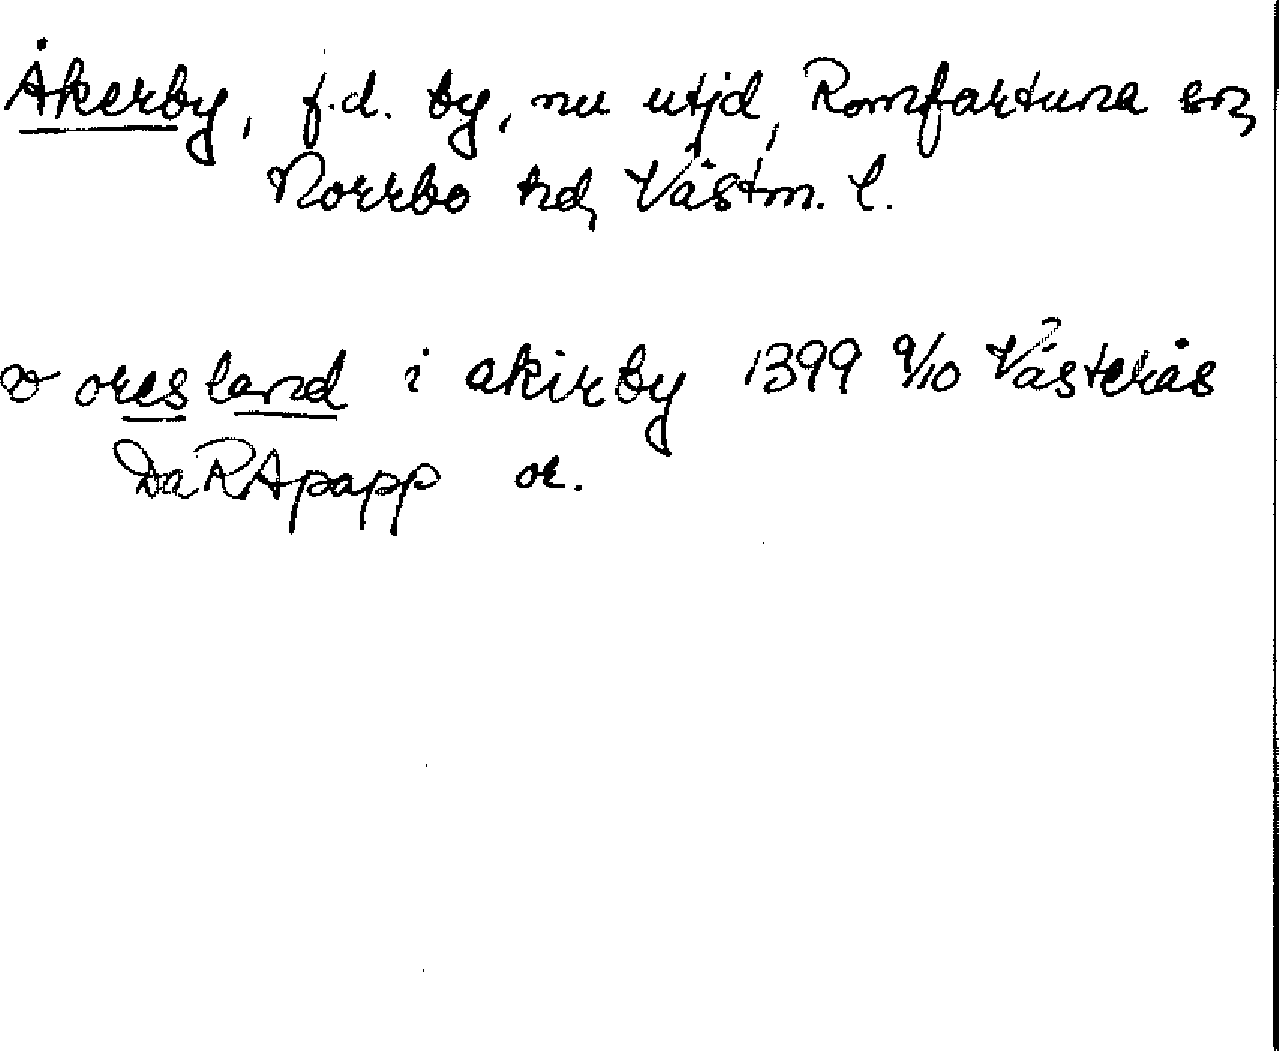 Åkerby, f.d. by, nu utjd, Romfartuna sn,
Norrbo hd, Västm. l.
oresland i akirby 1399 9/10 Västerås
DaRApapp or.